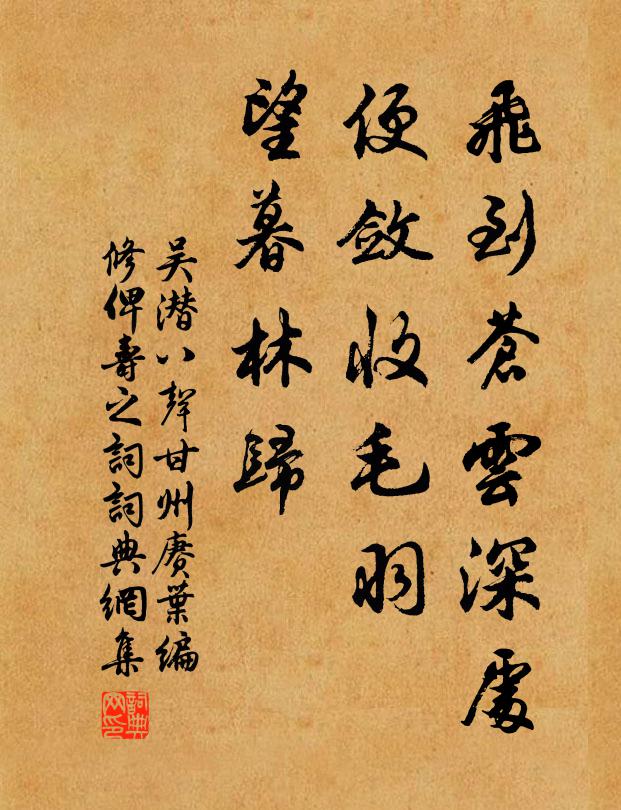 飛到蒼雲深處
便斂收毛羽
望暮林歸
吳潛八聲甘州賡葉編
修俾壽之詞詞典網集
詞典
网印